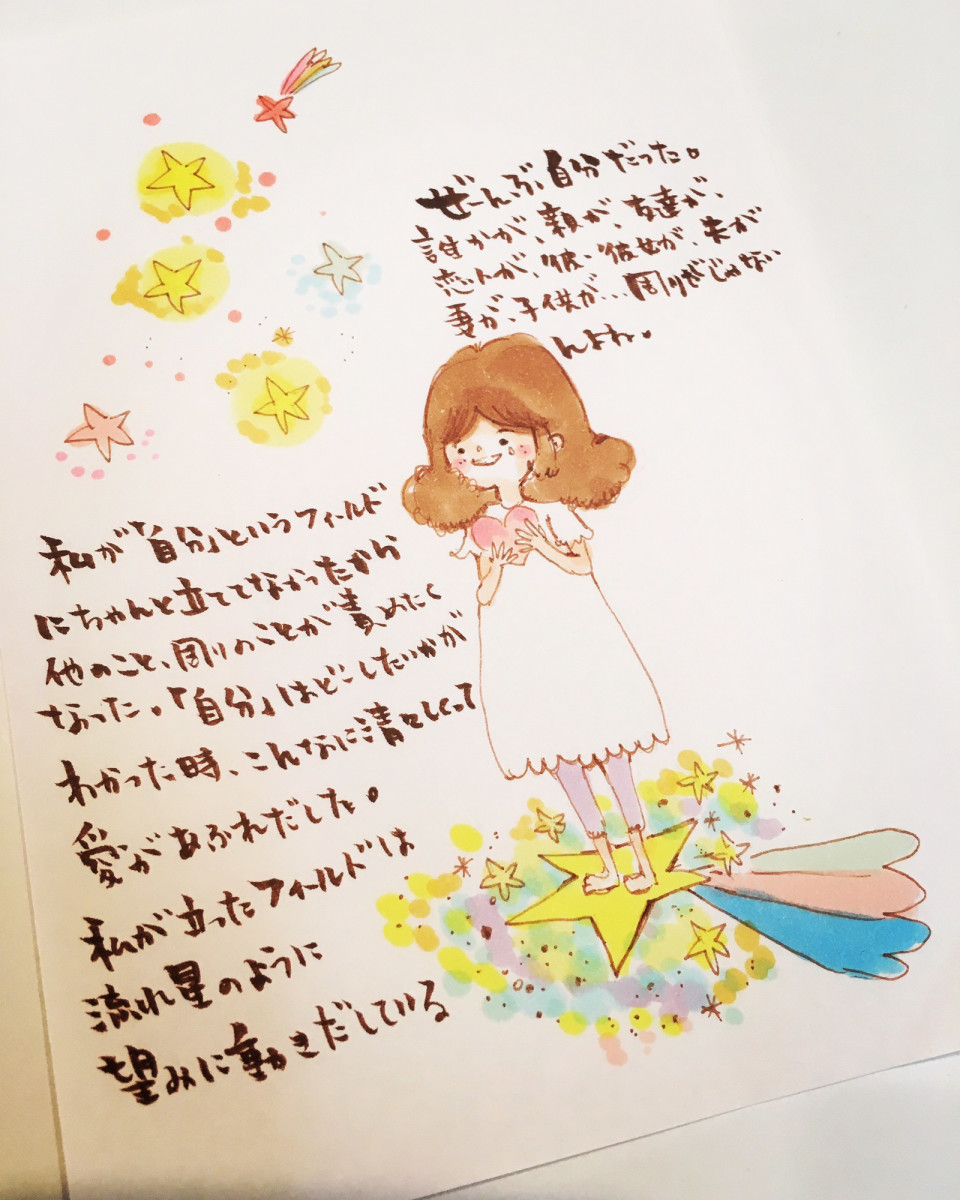 ぜーんぶ、自分だった。
誰かが、親が、友達が、
恋人が、彼・彼女が、夫が
妻が、子供が…周りがじゃない
んよね。
私が「自分」というフィールド
にちゃんと立ててなかったから
他のこと、周りのことが責めたく
なった。「自分」はどーしたいかが
わかった時、こんなに清々しくって
愛があふれだした。
私が立ったフィールドは
流れ星のように
望みに動きだしている